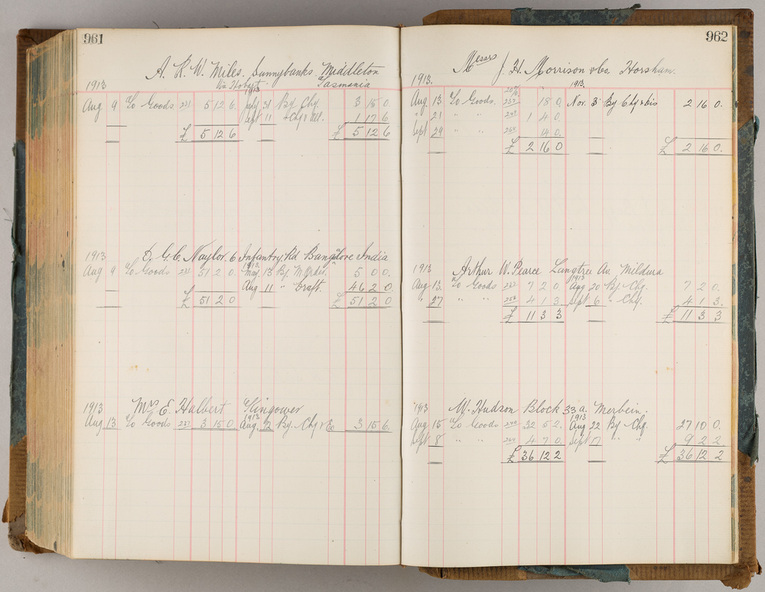 961
A. R. W. Miles. Sunnybanks. Middleton
Via Hobart Tasmania
1913 1913
Aug 9 To Goods 5 12 6 By Chq 3 15 0
Sept 11 1 17 6
£ 5 12 6 £ 5 12 6
1913 G. C. Naylor. 6 Infantry Rd Bangalore India
Aug 9 To Goods 51 2 0 By 5 0 0
Aug 11 " Draft 46 2 0
£ 51 2 0 £ 51 2 0
1913 Mrs E. Halbert Kingower
Aug 13 To Goods 3 15 0 Aug. By Chq 3 15 6
962
Messrs J. H. Morrison & Co Horsham.
1913. 1913
Aug 13 To Goods 15 0 Nov. 3 By Chq & dis 2 16 0.
" 21 " " 1 4 0
Sept 29 " "
£ 2 16 0 £ 2 16 0.
1913 Arthur W. Pearce Langtree Av Mildura
Aug 13. To Goods 7 2 0 Aug 20 By Chq. 7 2 0.
" 27 " " 4 1 3 Sept 6 " Chq. 4 1 3.
£ 11 3 3 £ 11 3 3
1913 W. Hudson Block 33a Merbein.
1913
Aug 15 To Goods 32 5 2 Aug 22 By Chq. 27 10 0.
Sept 8 " " 4 7 0 Sept " " 9 2 2
£ 36 12 2 £ 36 12 2